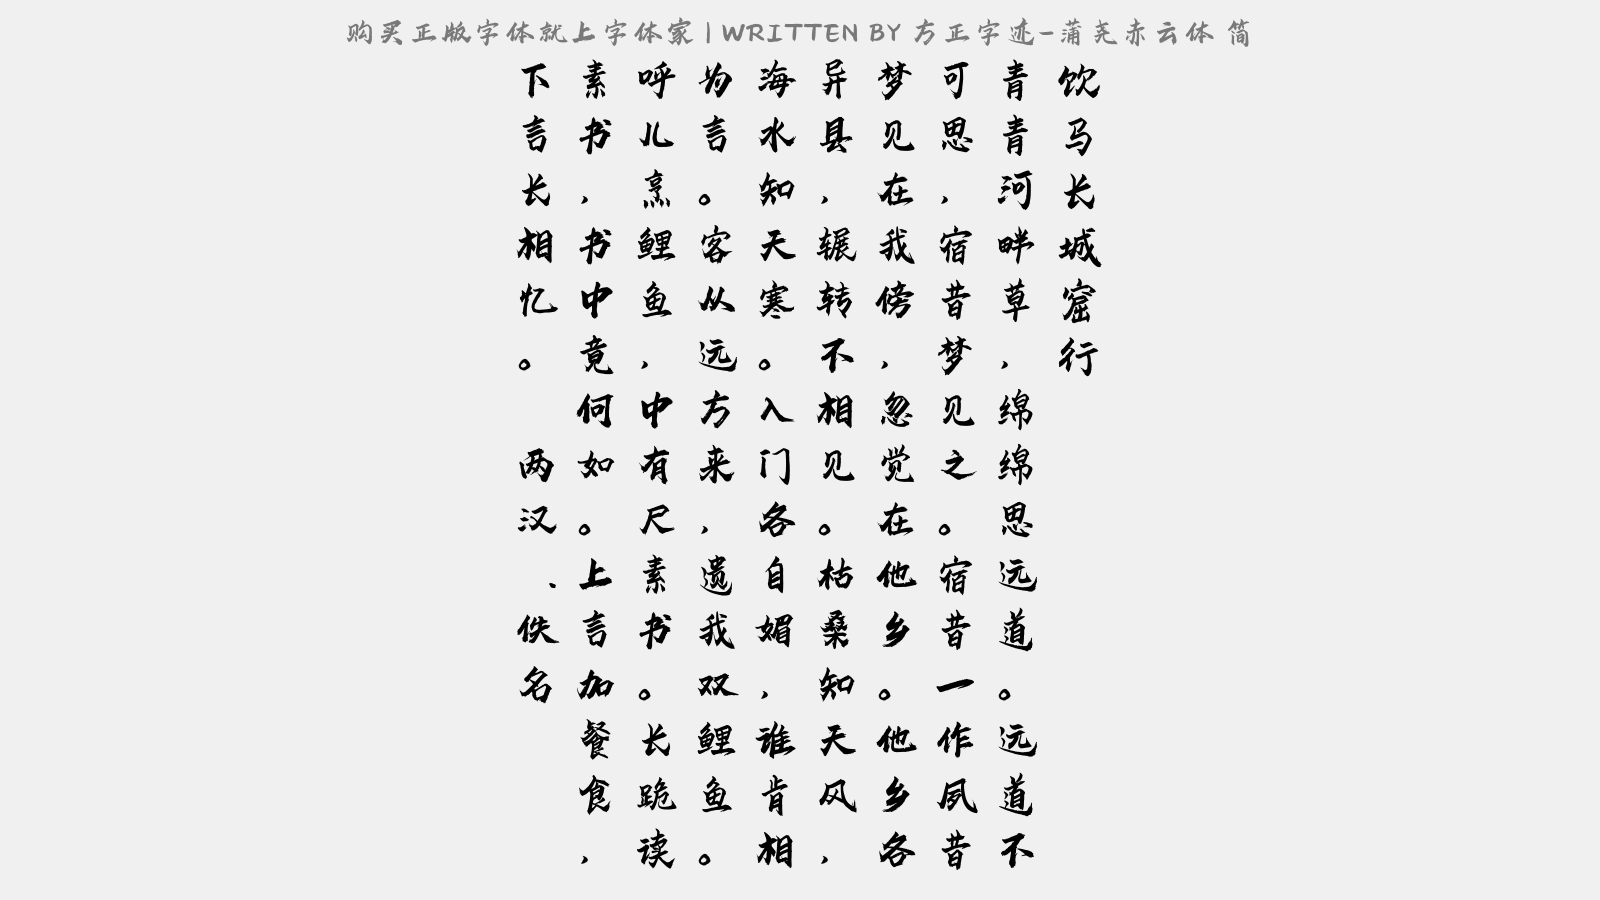 购买正版字体就上字体家 | WRITTEN BY 方正字迹-蒲尧赤云体 简
饮马长城窟行
青青河畔草，绵绵思远道。远道不
可思，宿昔梦见之。宿昔一作夙昔
梦见在我傍，忽觉在他乡。他乡各
异县，辗转不相见。枯桑知天风，
海水知天寒。入门各自媚，谁肯相
为言。客从远方来，遗我双鲤鱼。
呼儿烹鲤鱼，中有尺素书。长跪读
素书，书中竟何如。上言加餐食，
下言长相忆。 两汉．佚名